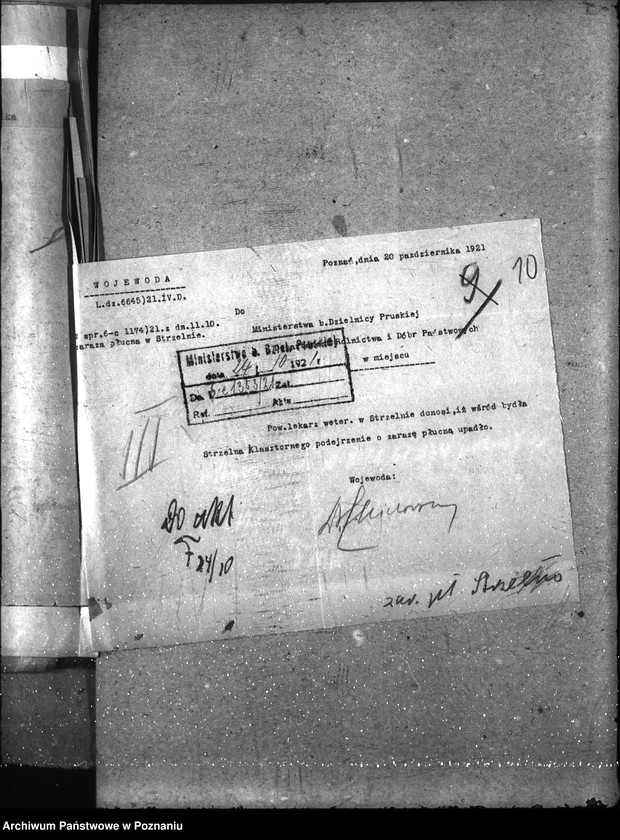 Poznań, dnia 20 października 1921
9 10
WOJEWODA
L.dz.6645)21.IV.D.
Do
spr.6-c 1174)21.z dn.11.10.
zaraza płucna w Strzelnie.
Ministerstwa b.Dzielnicy Pruskiej
Rolnictwa i Dóbr Państwowych
w miejscu
Ministerstwo b. Dzielnicy Pruskiej
dnia 24/10 1921 r
Da 6-c 1353/21 Zał.
Ref. Akta
Pow.lekarz weter. w Strzelnie donosi, iż wśród bydła
Strzelna Klasztornego podejrzenie o zarazę płucną upadło.
III
Wojewoda:
Do akt
F 24/10
zar. pł Strzelno
Archiwum Państwowe w Poznaniu